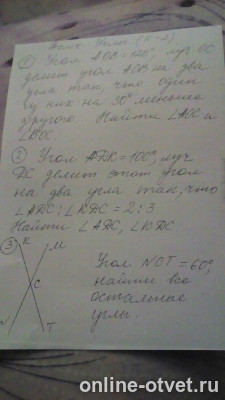 ① Угол АОВ=120°, луч ОС
делит угол АОВ на два
угла так, что один
из них на 30° меньше
другого. Найти ∠АОС и
∠ВОС.
② Угол АДК=100°, луч
ДС делит этот угол
на два угла так, что
∠АДС:∠КДС=2:3
Найти ∠АДС, ∠КДС
③ К М
Угол NCT=60°,
С
найти все
остальные
N Т углы.
online-otvet.ru